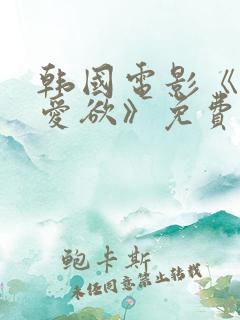 韩国电影《
爱欲》免费
鲍卡斯
未经同意禁止转载